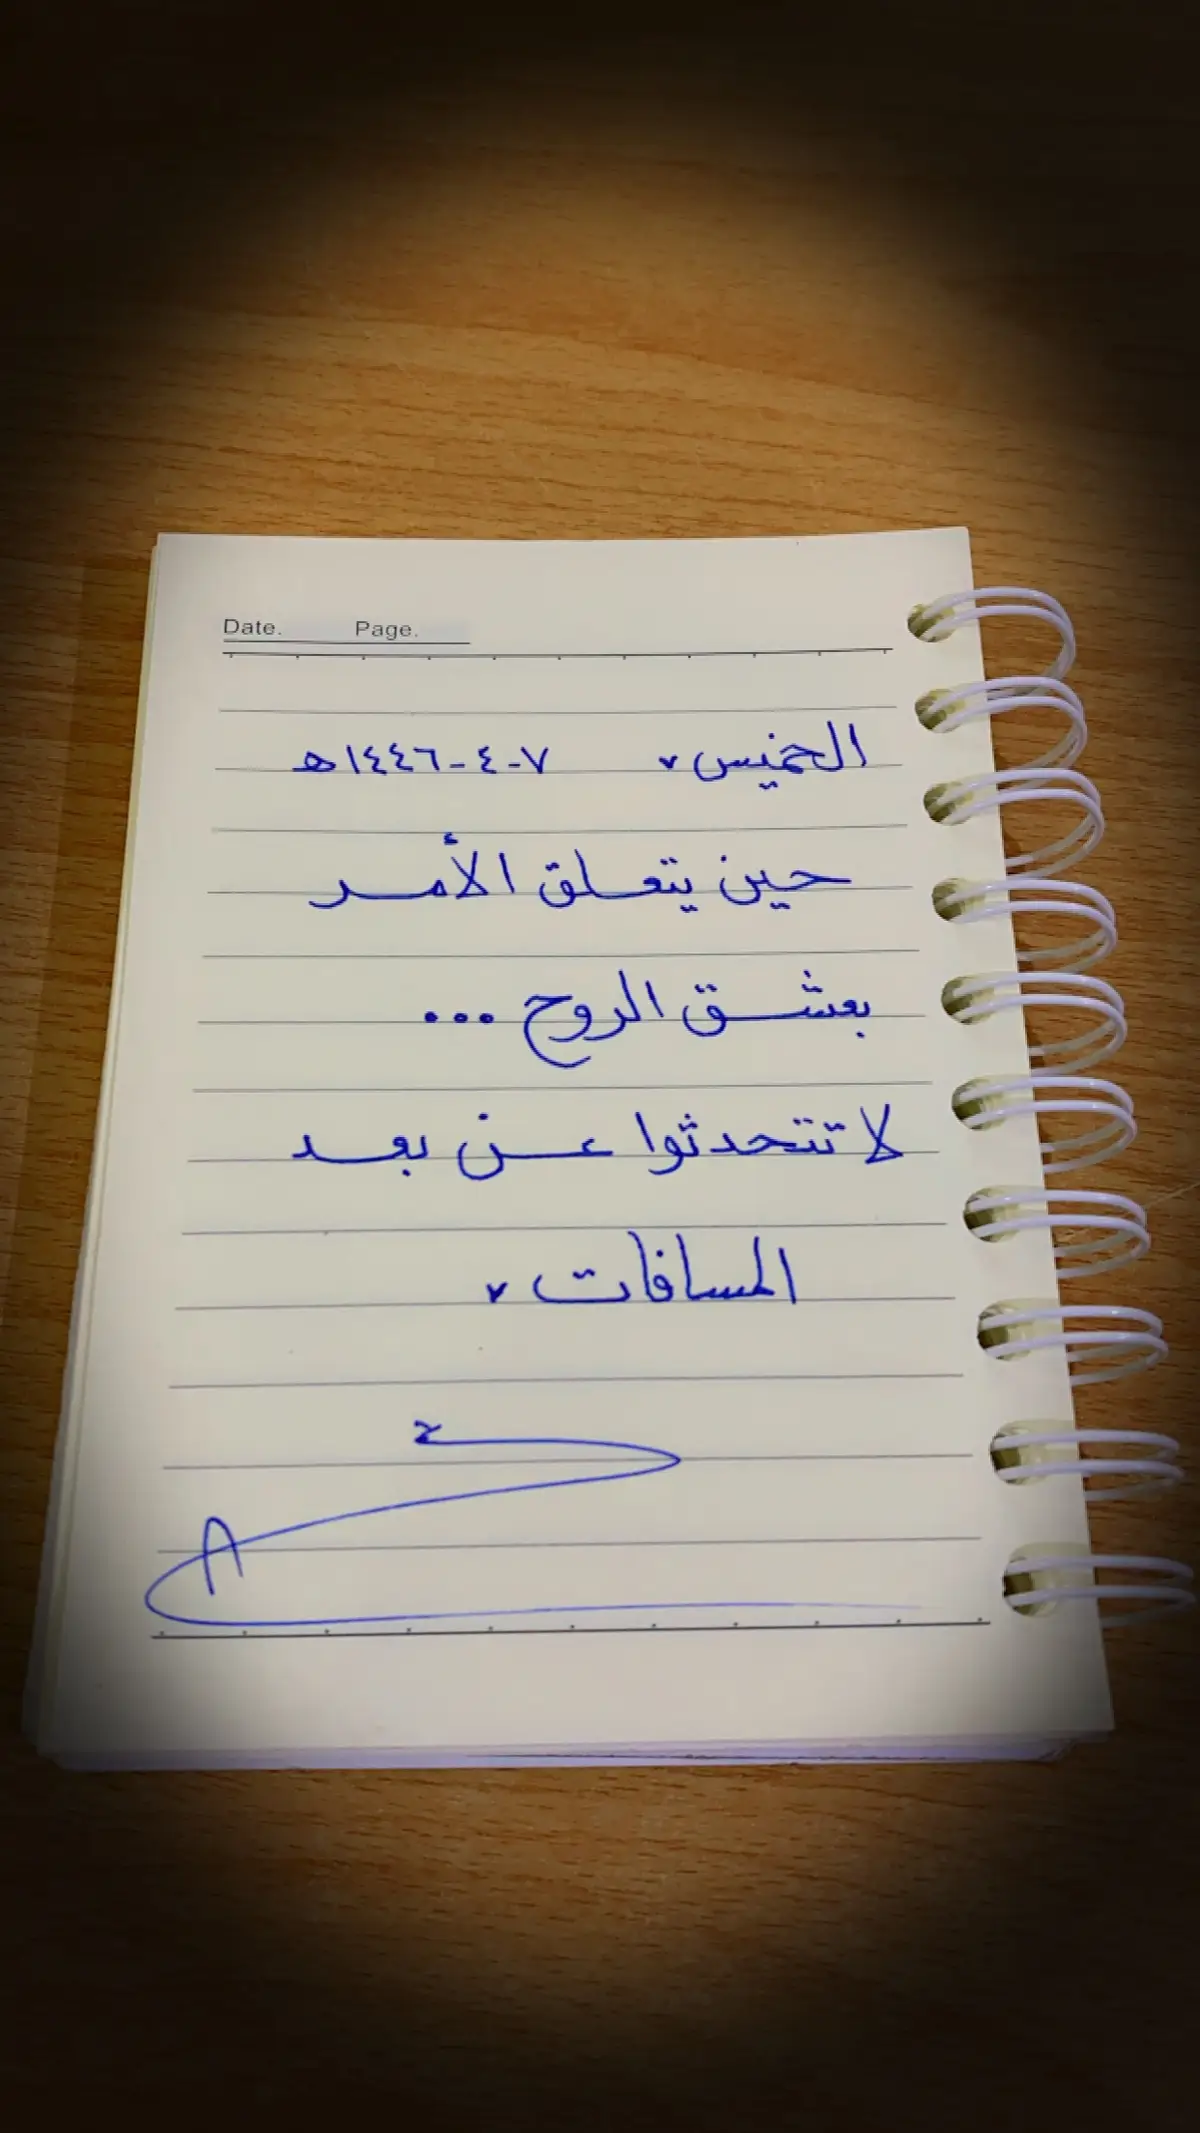 Date. Page.
الخميس ٧ ٧-٤-١٤٤٦هـ
حين يتعلق الأمر
بعشق الروح ...
لا تتحدثوا عن بعد
المسافات ٧